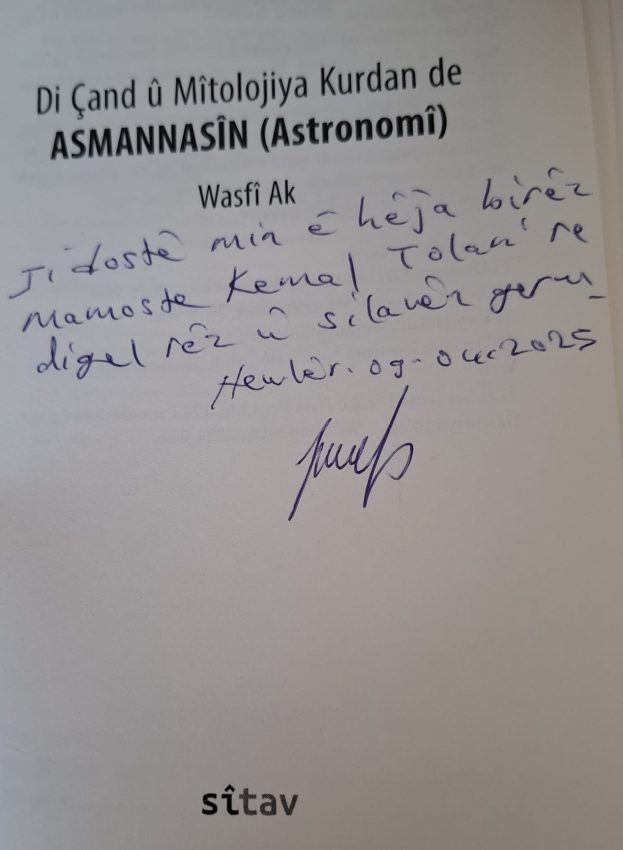 Di Çand û Mîtolojiya Kurdan de
ASMANNASÎN (Astronomî)
Wasfî Ak
Ji dostê min ê hêja birêz
Mamoste Kemal Tolan' re
digel rêz û silavên germ
Hewlêr. 09-04-2025
sîtav